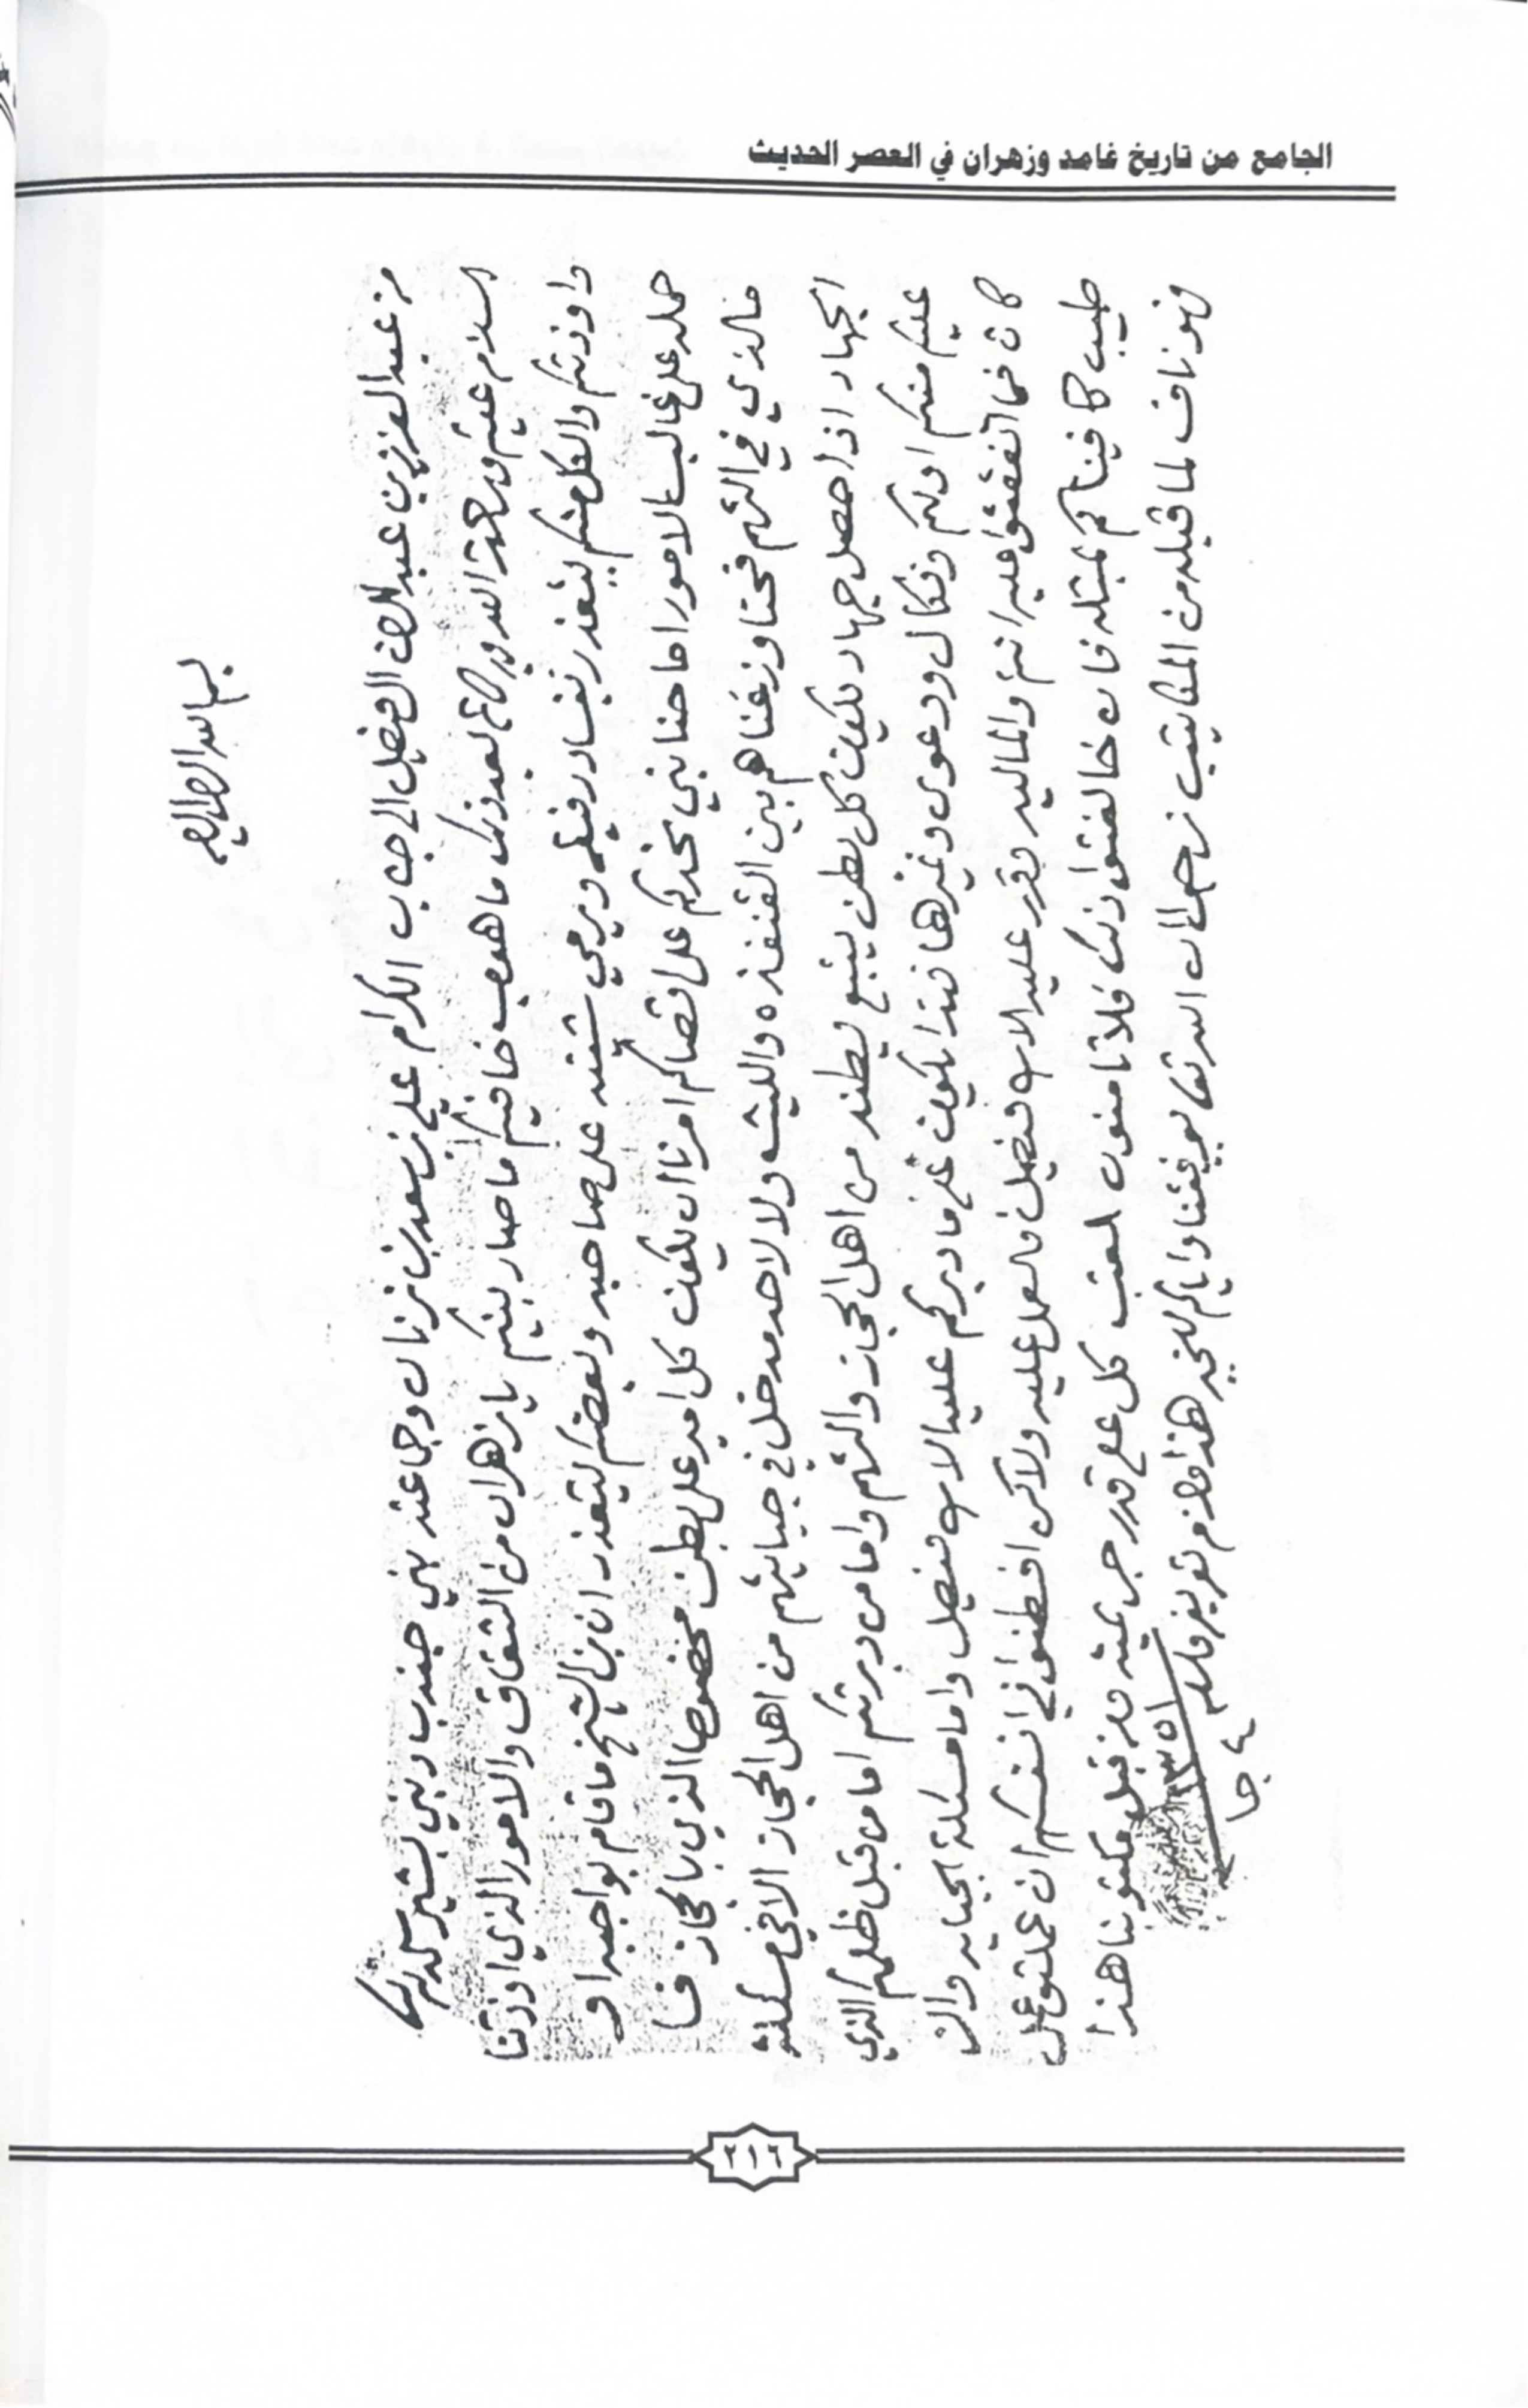 الجامع من تاريخ غامد وزهران في العصر الحديث
بسم الله الرحمن الرحيم
من عبد العزيز بن عبد الرحمن الفيصل الى جناب الكرام علي بن سعد بن زنان وجماعته بني جندب وبني بشير سلمهم الله
السلام عليكم ورحمة الله وبركاته بعد ذلك ما هوب خافيكم ما صار بينكم يا زهران من الشقاق والامور الذي اوذتنا
واوذتكم والكل منكم ليتعذر بفساد رفيقه ويرمي على صاحبه وبعضكم ليتعذر ان ابن الشيخ ما قام بواجبه او
حمله على غالب الامور اما حنا نبي نخبركم على اقصاكم امرنا ان يكون كل امير على بطن مخصوص الذي بالحجاز فا
فالذي في التهم فحنا وزعناهم بين القنفذه والليث ولا لاحد مدخل في جبايتهم من اهل الحجاز الا في مسئلة
الجهاد اذا حصل جهاد يكون كل بطن يتبع بطنه من اهل الحجاز والتهم واما من دبرتكم اما من قبل الذي
عليكم منكم اولكم ونكال ودعوى وغيرها فهذا يكون على ما دبركم عليه الابن فيصل واما مسئلة الجبايه وال
كان فما اتفقتوا عليه انتم والماليه وقرر عليه الابن فيصل فالعمل عليه ولاكن افطنوا في انفسكم ان عملتوا على
طيب كافيناكم بمثله فان خالفتوا ذلك فلا تامنون العتب كل على قدر جريمته ومن قبل مكتوبنا هذا
فهو ناف لما قبله من المكاتيب نرجوا ان الله تعالى يوفقنا واياكم للخير هذا ما لزم تعريفه والسلام
٤ جا ١٣٥١
٣١٢